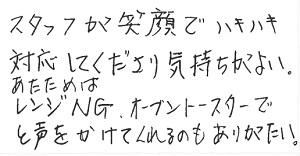 スタッフが笑顔でハキハキ
対応してくださり気持ちがよい。
あたためは
レンジNG、オーブントースターで
と声をかけてくれるのもありがたい!